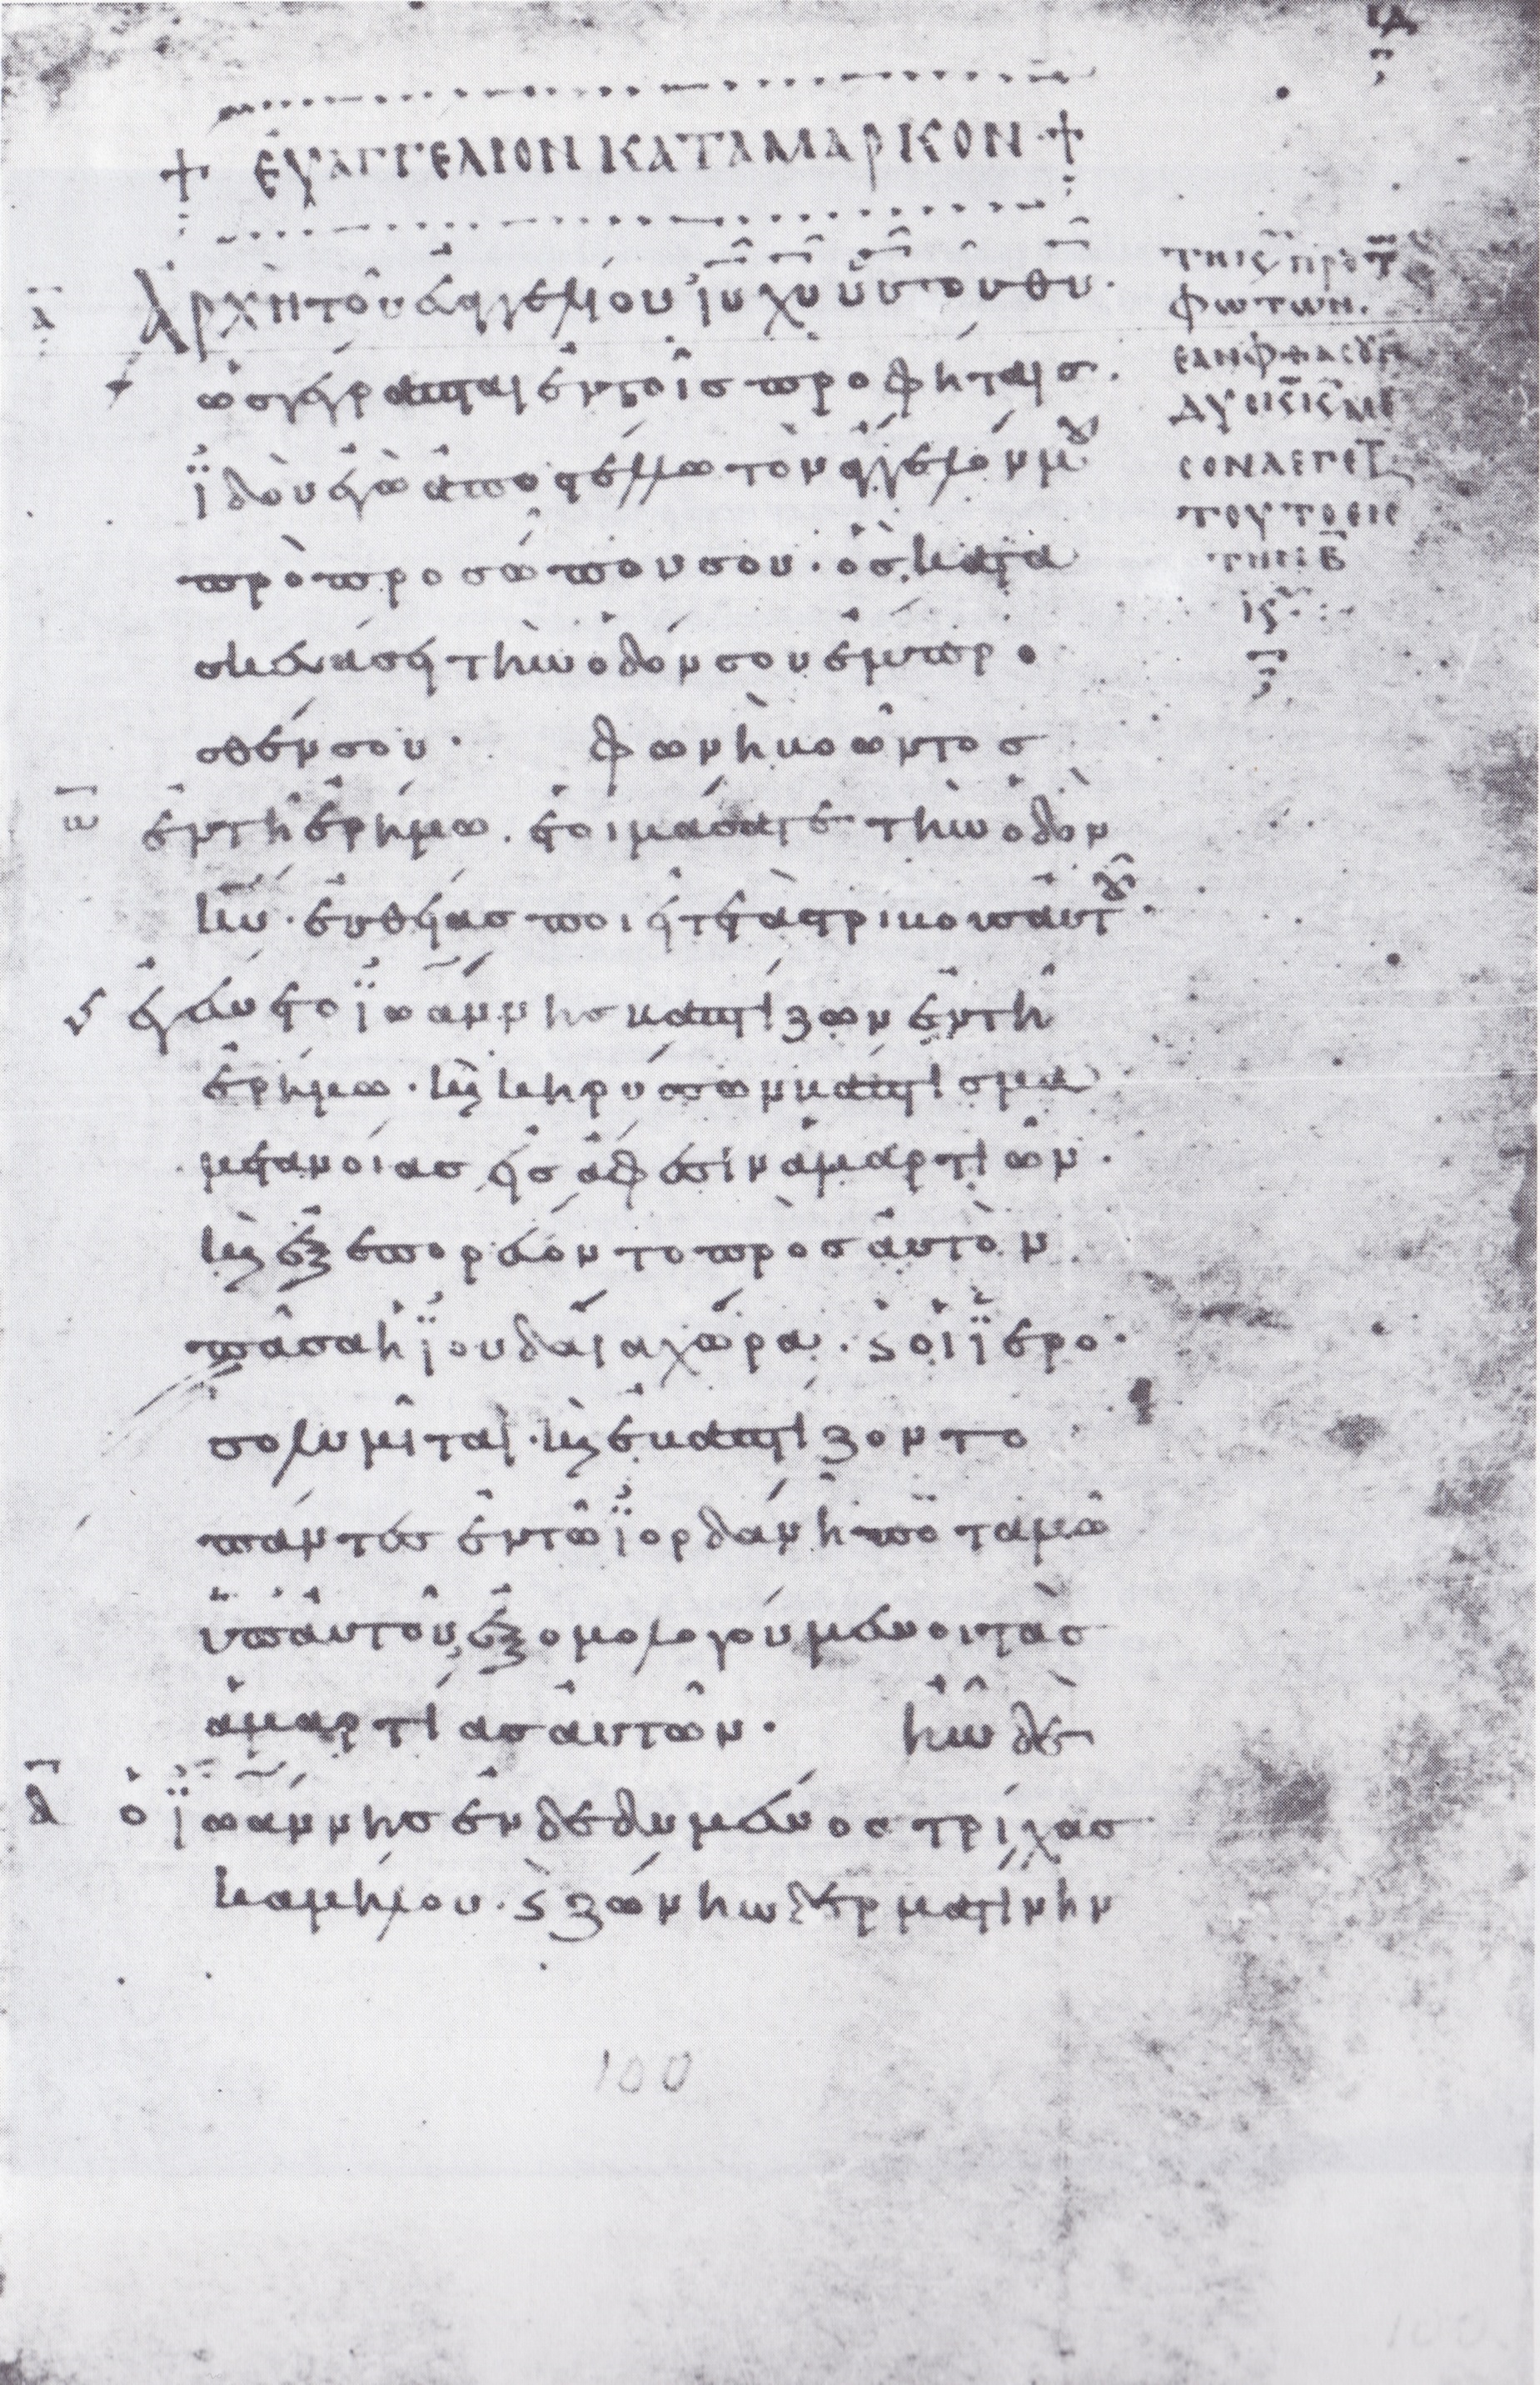 ιδ
+ ΕΥΑΓΓΕΛΙΟΝ ΚΑΤΑ ΜΑΡΚΟΝ +
α Ἀρχὴ τοῦ εὐαγγελίου ἰυ χυ υυ τοῦ θυ·
ὡς γέγραπται ἐν τοῖς προφήταις·
ἰδοὺ ἐγὼ ἀποστέλλω τὸν ἄγγελόν μου
πρὸ προσώπου σου· ὃς κατα
σκευάσει τὴν ὁδόν σου ἔμπρο
σθέν σου· φωνὴ βοῶντος
ἐν τῇ ἐρήμω· ἑτοιμάσατε τὴν ὁδὸν
κυ· εὐθείας ποιεῖτε τὰς τρίβους αὐτοῦ·
ἐγένετο ἰωάννης βαπτίζων ἐν τῇ
ἐρήμω· κὶ κηρύσσων βάπτισμα
μετανοίας εἰς ἄφεσιν ἁμαρτιῶν·
κὶ ἐξεπορεύοντο πρὸς αὐτὸν
πᾶσα ἡ ἰουδαία χώρα· ϛ οἱ ἱερο
σολυμῖται· κὶ ἐβαπτίζοντο
πάντες ἐν τῶ ἰορδάνη ποταμῶ
ὑπ' αὐτοῦ, ἐξομολογούμενοι τὰς
ἁμαρτίας αὐτῶν· ἦν δὲ
ὁ ἰωάννης ἐνδεδυμένος τρίχας
καμήλου· ϛ ζώνην δερματίνην
ΦΩΤΩΝ.
ΤΟΥΤΟ ΕΙΣ
100